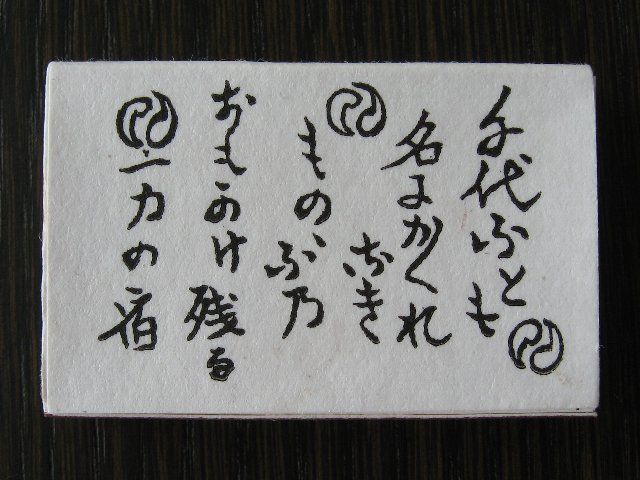 千代ふとも
名はかくれ
なき
ものゝふ乃
おもかけ残る
一力の宿